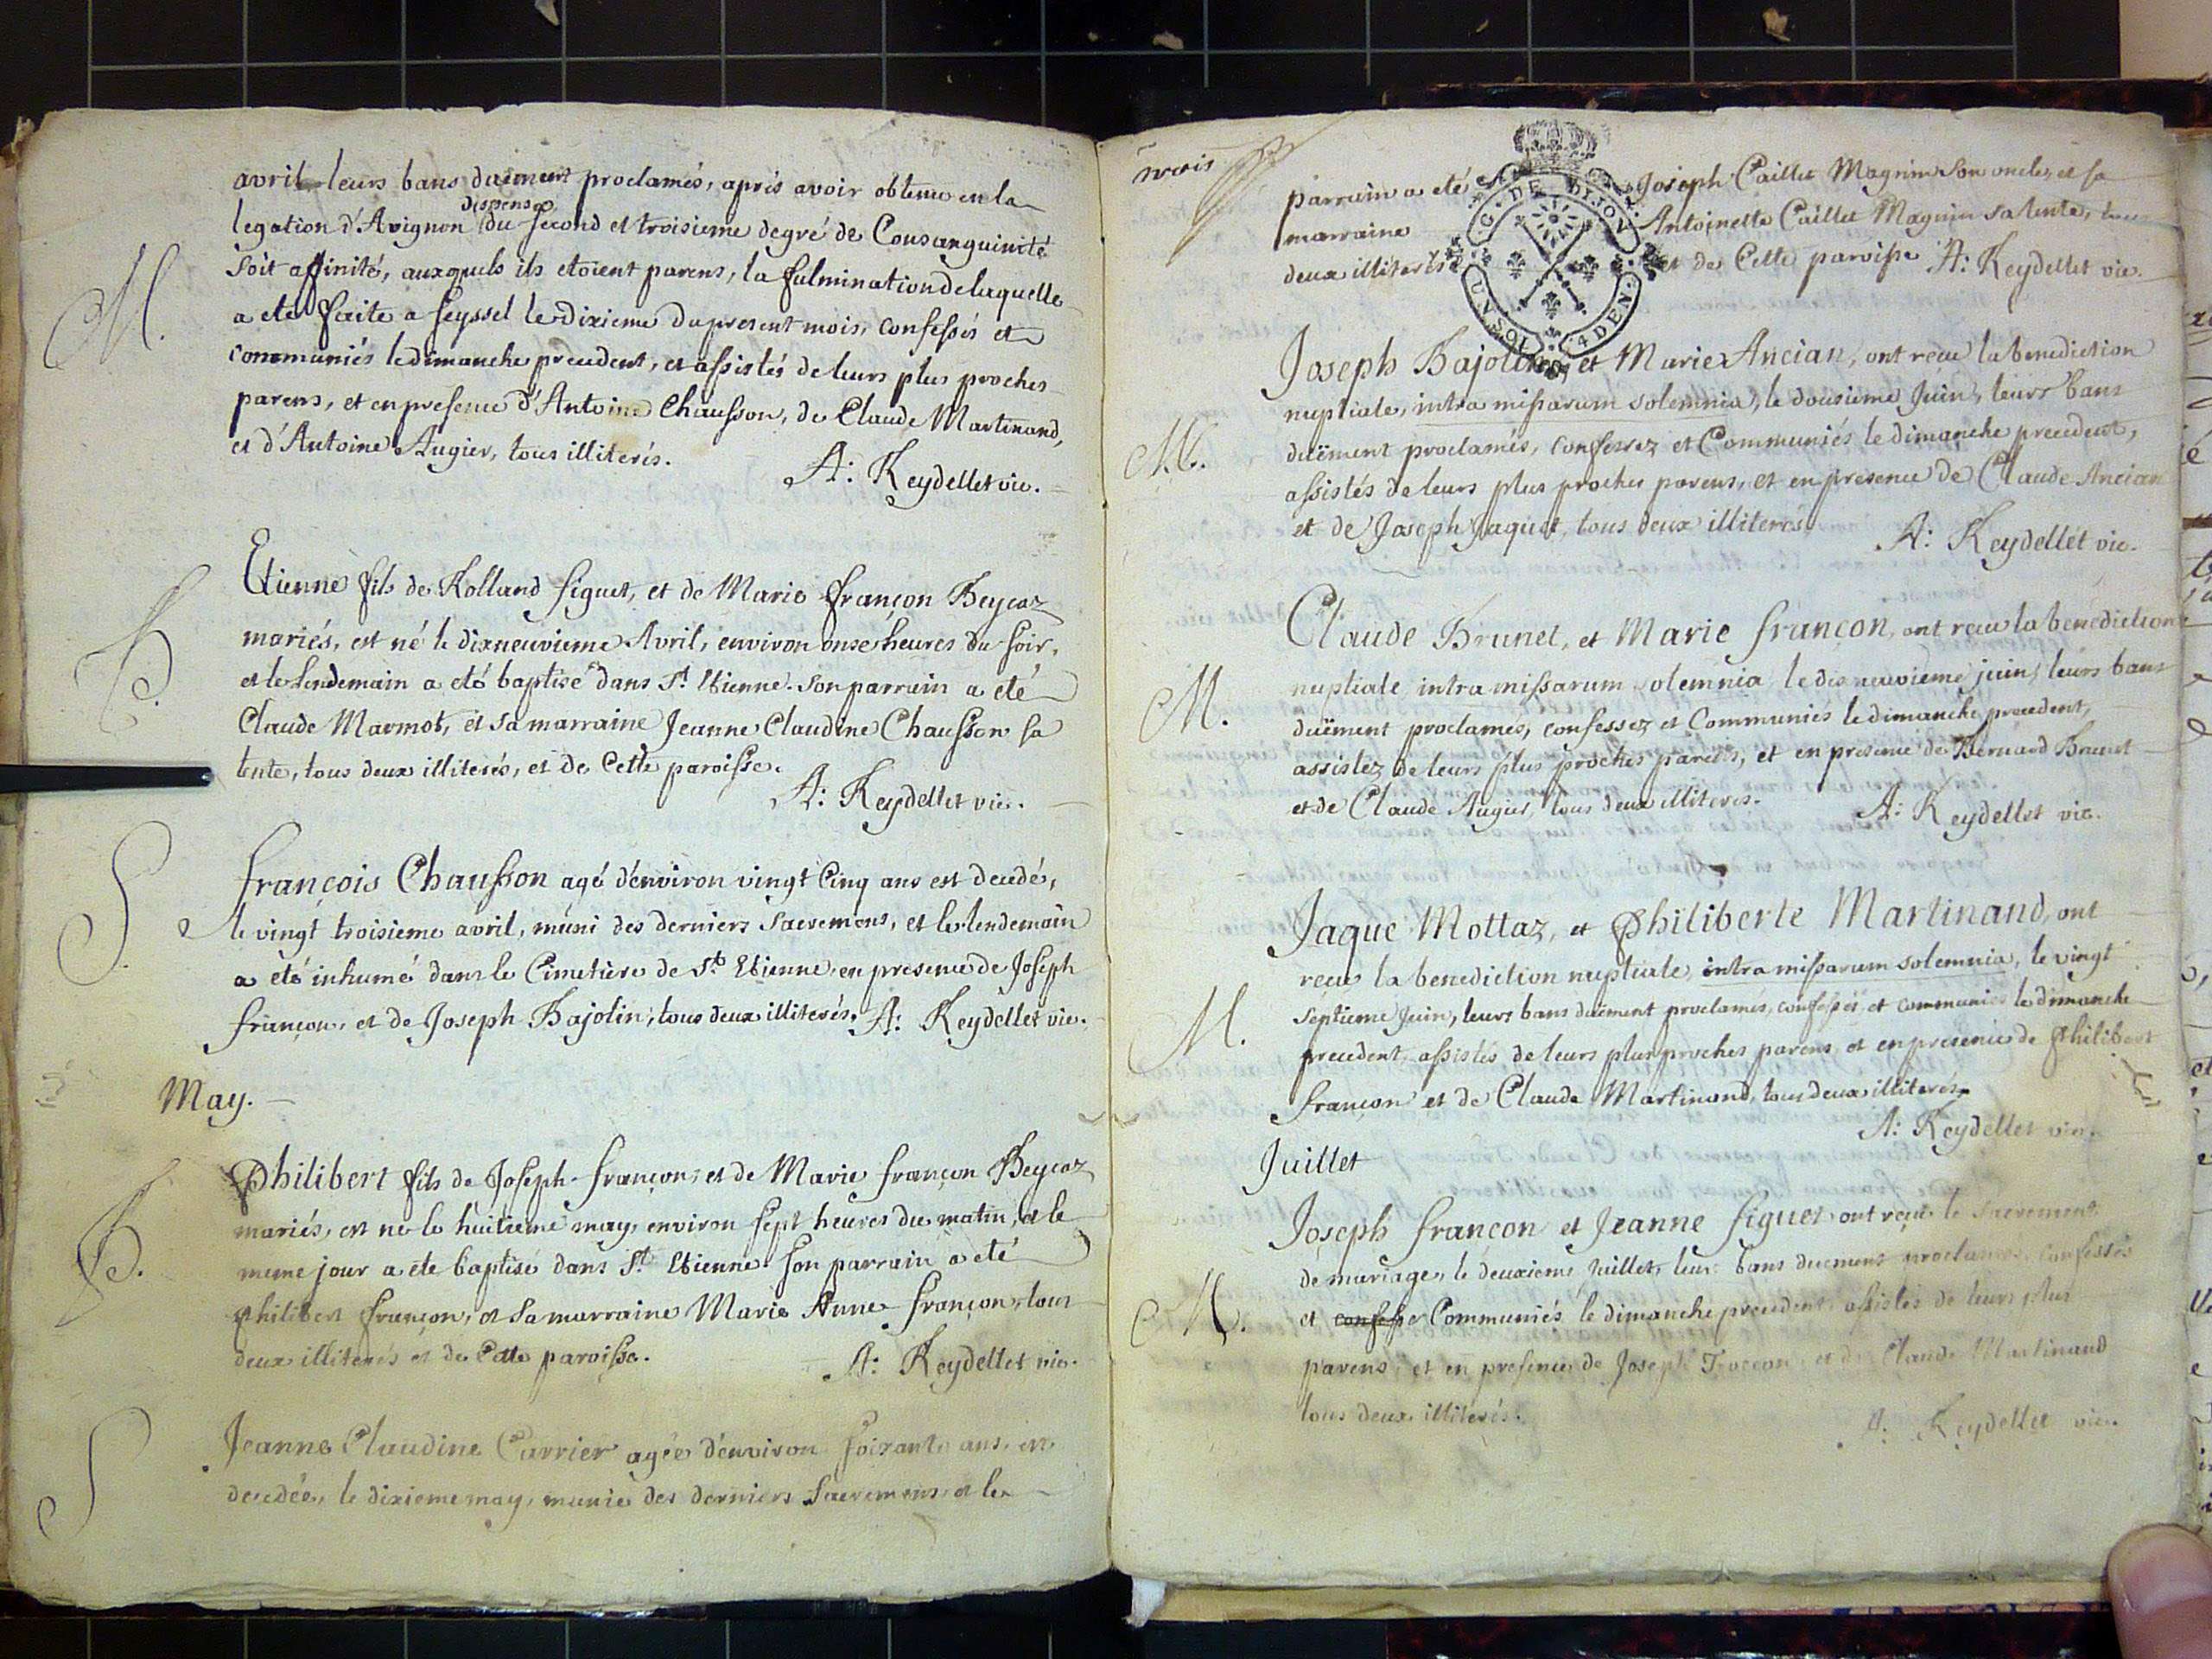 avril leurs bans duëment proclamés, aprés avoir obtenu en la
dispense
legation d'Avignon du second et troisieme degré de Consanguinité
soit affinité, auxquels ils etoient parens, la fulmination de laquelle
M.
a eté faite a seyssel le dixieme du present mois, confessés et
communiés le dimanche precedent, et assistés de leurs plus proches
parens, et en presence d'Antoine Chausson, de Claude Martinand,
et d'Antoine Augier, tous illiterés.
A: Reydellet vic.
Etienne fils de Rolland figuet, et de Marie françon Beycoz
B.
mariés, est né le dixneuvieme Avril, environ onse heures du soir,
et le lendemain a eté baptisé dans St. Etienne. Son parrain a eté
Claude Marmot, et sa marraine Jeanne Claudine Chausson sa
tente, tous deux illiterés, et de Cette paroisse.
A: Reydellet vic.
S.
françois Chausson agé d'environ vingt Cinq ans est decedé,
le vingt troisieme avril, muni des derniers sacremens, et le lendemain
a eté inhumé dans le Cimetière de St. Etienne, en presence de Joseph
françon, et de Joseph Bajolin, tous deux illiterés. A: Reydellet vic.
May.
Philibert fils de Joseph françon, et de Marie françon Beycoz
B.
mariés, est né le huitieme may, environ sept heures du matin, et le
meme jour a ete baptisé dans St. Etienne. Son parrain a eté
philibert françon, et sa marraine Marie Anne françon, tous
deux illiterés et de Cette paroisse.
A: Reydellet vic.
S
Jeanne Claudine Carrier agée d'environ soixante ans, est
decedée, le dixieme may, munie des derniers sacremens, et le
parrain a eté Joseph Caillet Magnin son oncle, et sa
marraine Antoinette Caillet Magnin sa tente, tous
deux illiterés et de Cette paroisse A: Reydellet vic.
G. DE DIJON
4 DEN.
Joseph Bajolin, et Marie Ancian, ont reçu la benediction
nuptiale, intra missarum solemnia, le dousieme Juin, leurs bans
M.
duëment proclamés, confessez et Communiés le dimanche precedent,
assistés de leurs plus proches parens, et en presence de Claude Ancian
et de Joseph Jaquet, tous deux illiterés.
A: Reydellet vic.
Claude Brunet, et Marie françon, ont reçu la benediction
M.
nuptiale intra missarum solemnia le dixneuvieme juin, leurs bans
duëment proclamés, confessez et Communiés le dimanche precedent,
assistez de leurs plus proches parens, et en presence de Bernard Brunet
et de Claude Augier, tous deux illiterés.
A: Reydellet vic.
Jaque Mottaz, et Philiberte Martinand, ont
reçu la benediction nuptiale intra missarum solemnia, le vingt
M.
septieme Juin, leurs bans duëment proclamés, confessés, et communiés le dimanche
precedent, assistés de leurs plus proches parens et en presence de philibert
françon et de Claude Martinand, tous deux illiterés.
A: Reydellet vic.
Juillet
Joseph françon et Jeanne figuet ont reçu le sacrement
de mariage, le deuxieme Juillet, leurs bans duement proclamés, confessés
M.
et confessé Communiés le dimanche precedent, assistés de leurs plus
parens, et en presence de Joseph et de Claude Martinand
tous deux illiterés.
A: Reydellet vic.